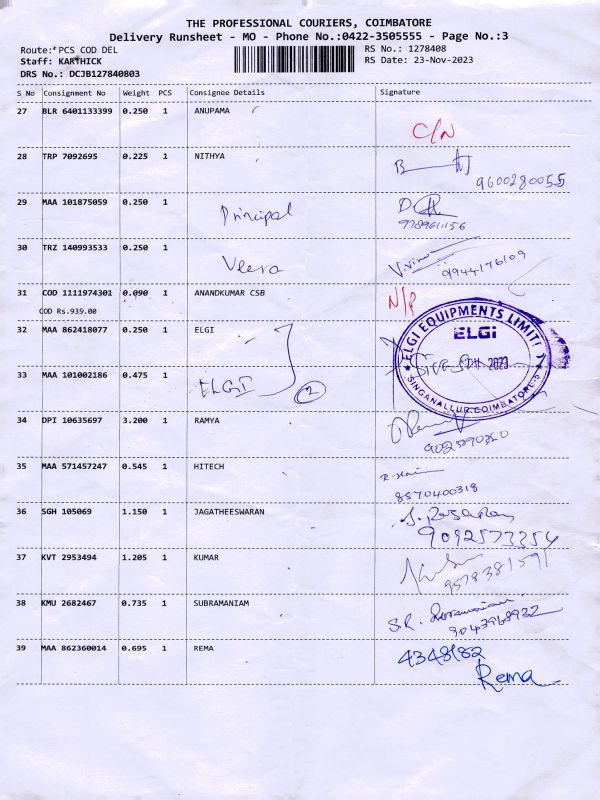 THE PROFESSIONAL COURIERS, COIMBATORE
Delivery Runsheet - MO - Phone No.:0422-3505555 - Page No.:3
Route: PCS COD DEL
RS No.: 1278408
Staff: KARTHICK
RS Date: 23-Nov-2023
DRS No.: DCJB127840803
S No Consignment No Weight PCS Consignee Details Signature
27 BLR 6401133399 0.250 1 ANUPAMA
C/N
28 TRP 7092695 0.225 1 NITHYA
9600280055
29 MAA 101875059 0.250 1 Principal
9789611156
30 TRZ 140993533 0.250 1 Veera
9944176109
31 COD 1111974301 0.090 1 ANANDKUMAR CSB N/P
COD Rs.935.00
32 MAA 862418077 0.250 1 ELGI
ELGI EQUIPMENTS LIMIT
ELGi
2023
SINGANALLUR, COIMBATORE-5
33 MAA 101002186 0.475 1 ELGI 2
34 DPI 10635697 3.200 1 RAMYA
35 MAA 571457247 0.545 1 HITECH
8570400318
36 SGH 105069 1.150 1 JAGATHEESWARAN
9092573354
37 KVT 2953494 1.205 1 KUMAR
9578381591
38 KMU 2682467 0.735 1 SUBRAMANIAM S.R.
9043968922
39 MAA 862360014 0.695 1 REMA 4348182
Rema